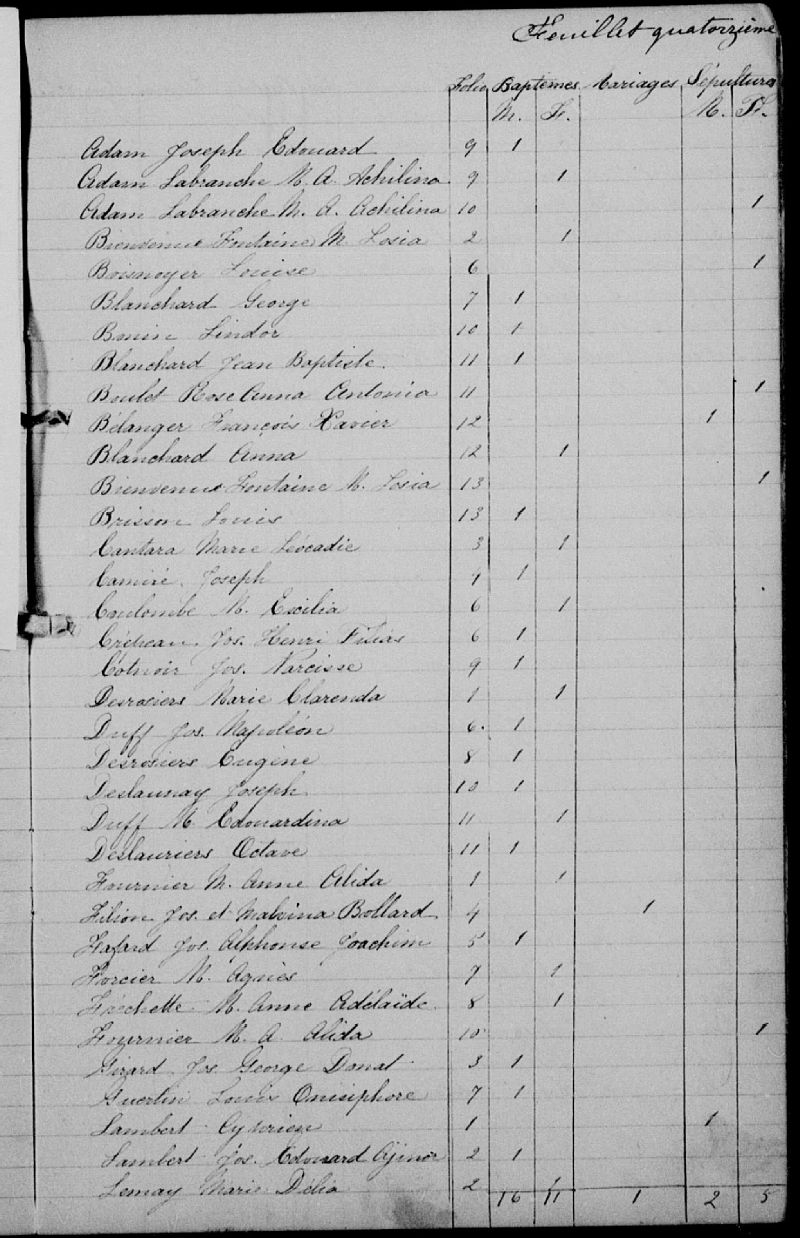 Feuillet quatorzième
Folio Baptêmes Mariages Sépultures
M. F. M. F.
Adam Joseph Edouard 9 1
Adam Labranche M. A. Achilina 9 1
Adam Labranche M. A. Achilina 10 1
Bienvenue Fontaine M. Losia 2 1
Boisnoyer Louise 6 1
Blanchard George 7 1
Bonin Lindor 10 1
Blanchard Jean Baptiste 11 1
Boulet Rose Anna Antonia 11 1
Bélanger François Xavier 12 1
Blanchard Anna 12 1
Bienvenue Fontaine M. Losia 13 1
Brisson Louis 13 1
Cantara Marie Léocadie 3 1
Camiré Joseph 4 1
Coulombe M. Exilia 6 1
Crébeau Jos. Henri Filias 6 1
Cotnoir Jos. Narcisse 9 1
Desrosiers Marie Clarenda 1 1
Duff Jos. Napoléon 6. 1
Desrosiers Eugène 8 1
Deslaunay Joseph 10 1
Duff M Edouardina 11 1
Deslauriers Octave 11 1
Fournier M. Anne Alida 1 1
Filion Jos. et Malvina Bollard 4 1
Fafard Jos. Alphonse Joachim 5 1
Forcier M. Agnès 7 1
Fréchette M. Anne Adélaïde 8 1
Fournier M. A. Alida 10 1
Girard Jos George Donat 3 1
Guertin Louis Onisiphore 7 1
Lambert Cyprien 1 1
Lambert Jos. Edouard 2 1
Lemay Marie Délia 2 1
16 11 1 2 5